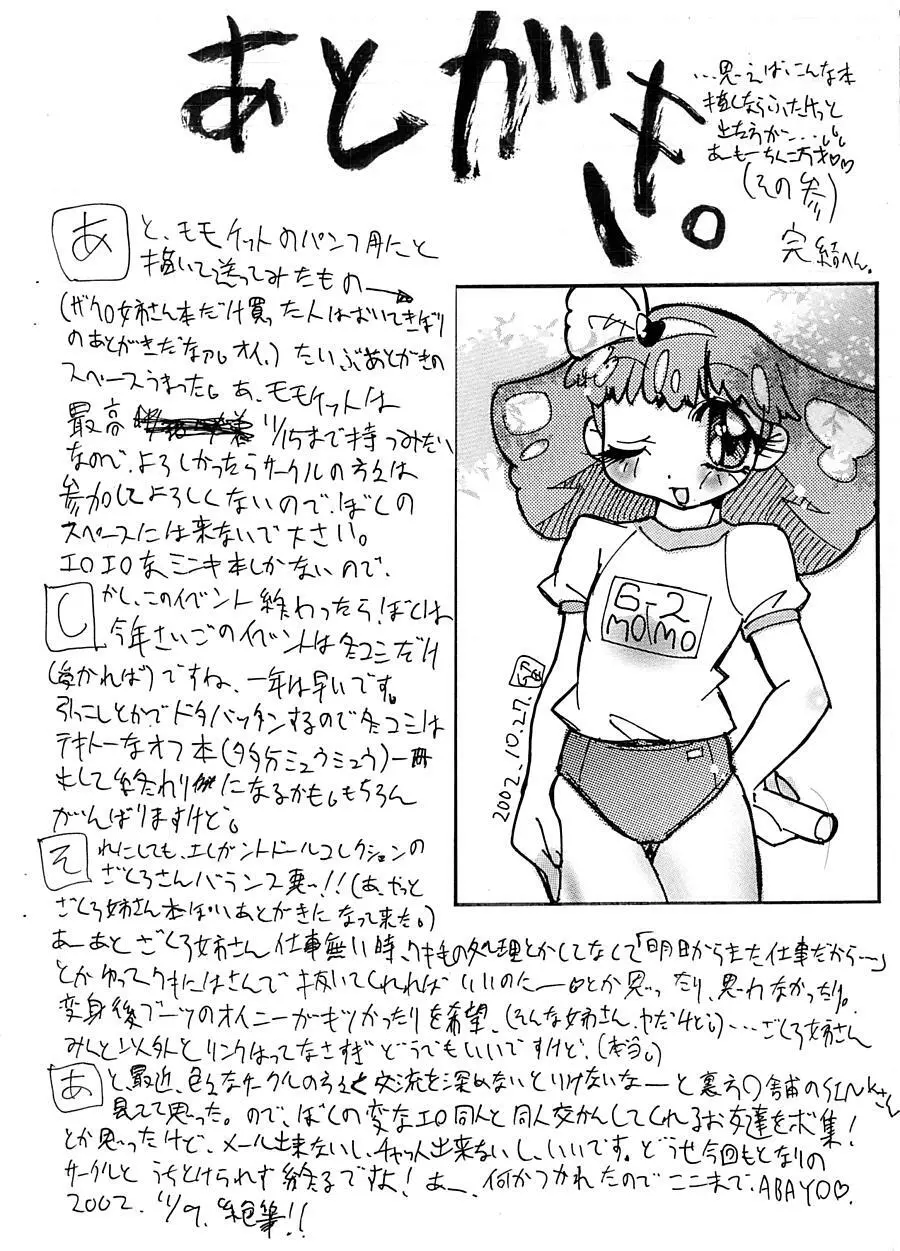 あとがき。
…思えばこんな本
描くならふたけっと
出たろうが……。
あーもーちんこ万才♡♡
(その参)
完結へん。
あと、モモケットのパンフ用にと
描いて送ってみたもの→
(ザクロ姉さん本だけ買った人はおいてきぼり
のあとがきだなァ。オイ。)たいぶあとがきの
スペースうまった。あ、モモケットは
最高 11/15まで待つみたい
なので、よろしかったらサークルの方々は
参加してよろしくないので、ぼくの
スペースには来ないで下さい。
エロエロなミンキ本しかないので、
しかし、このイベント終わったら、ぼくは
今年さいごのイベントは冬コミだけ
(受かれば)ですね、一年は早いです。
引っこしとかでドタバッタンするので冬コミは
テキトーなオフ本(多分ミュウミュウ)一冊
出して終わりになるかも。もちろん
がんばりますけど。
それにしても、エレガントドールコレクションの
ざくろさんバランス悪っ!!(あ、やっと
ざくろ姉さん本ぽいあとがきになって来た。)
あーあと、ざくろ姉さん仕事無い時、ワキ毛の処理とかしてなくて「明日からまた仕事だから…」
とかゆってワキにはさんで抜いてくれればいいのにー。とか思ったり、思わなかったり。
変身後ブーツのオイニーがキツかったりを希望、(そんな姉さん、ヤだけど。)…ざくろ姉さん
みんと以外とリンクはってなさすぎ どうでもいいですけど、(本当。)
あと、最近、色々なサークルの方々と交流を深めないといけないなーと裏方〇舗のSINKさん
見てて思った。ので、ぼくの変なエロ同人と同人交かんしてくれるお友達をボ集!
とか思ったけど、メール出来ないし、チャット出来ないし、いいです。どうせ今回もとなりの
サークルと うちとけられず終るですよ!あー、何かつかれたのでここまで、ABAYO♡.
2002. 11/9. 絶筆!!
6-2
MOMO
2002.10.27.